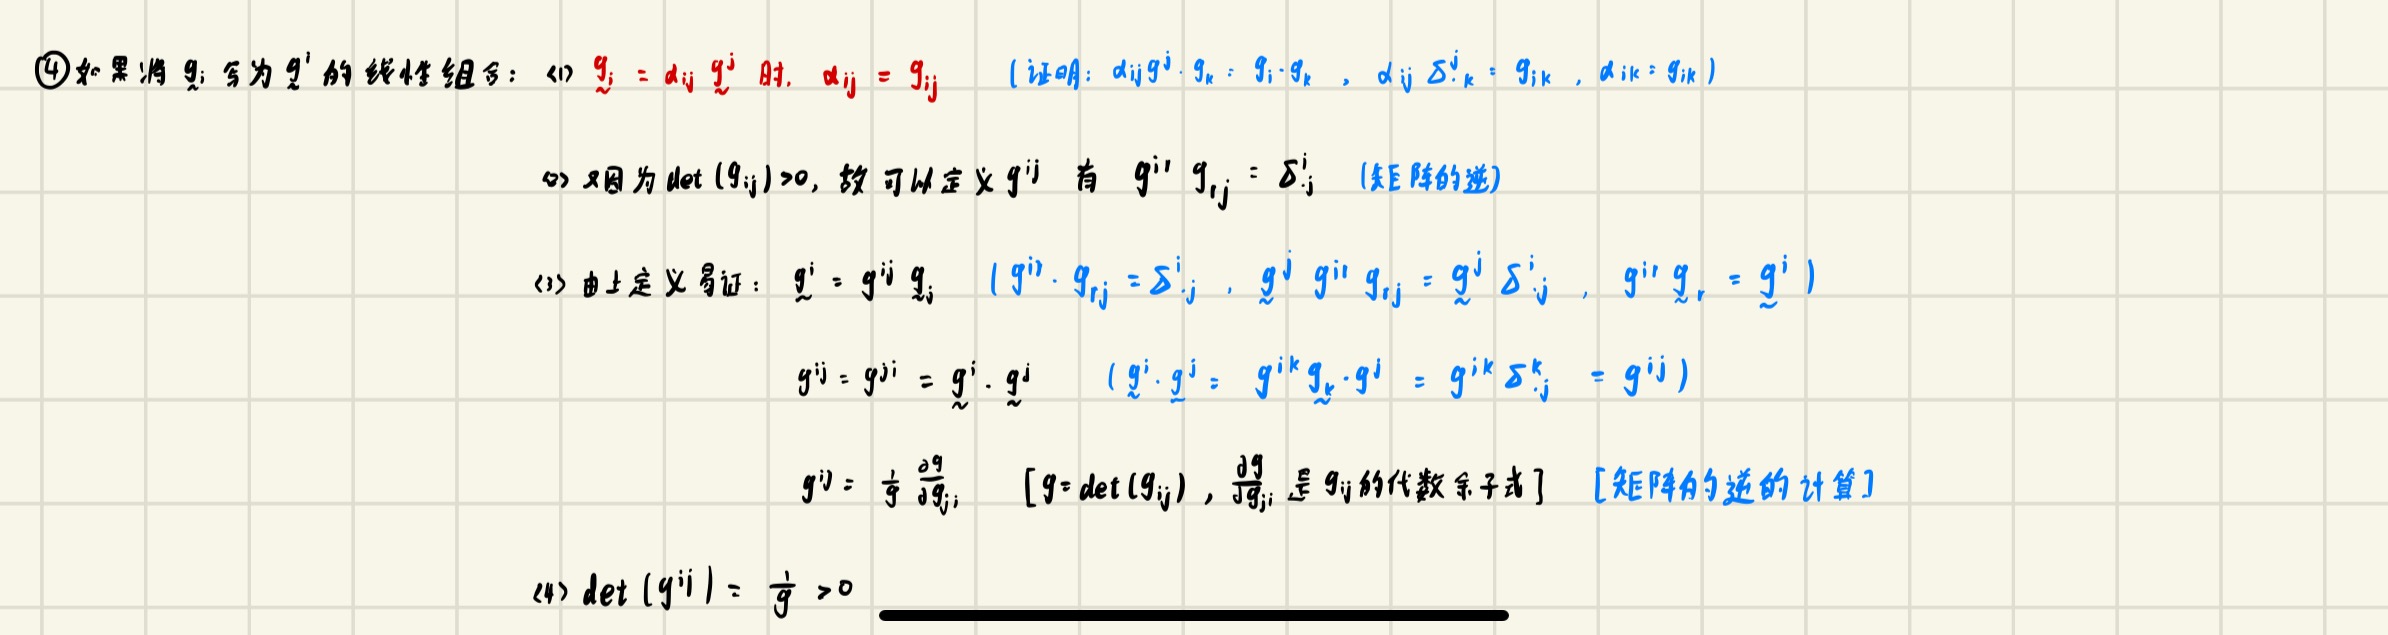 ④如果将 g̰ᵢ 写为 g̰ⁱ 的线性组合: <1> g̰ᵢ = αᵢⱼ g̰ʲ 时, αᵢⱼ = gᵢⱼ (证明: αᵢⱼgʲ·gₖ = gᵢ·gₖ , αᵢⱼ δʲ.ₖ = gᵢₖ , αᵢₖ = gᵢₖ)
<2> 又因为 det(gᵢⱼ)>0, 故可以定义 gⁱʲ 有 gⁱʳ gᵣⱼ = δⁱ.ⱼ (矩阵的逆)
<3> 由上定义易证: g̰ⁱ = gⁱʲ g̰ⱼ (gⁱʳ·gᵣⱼ = δⁱ.ⱼ , g̰ʲ gⁱʳ gᵣⱼ = g̰ʲ δⁱ.ⱼ , gⁱʳ g̰ᵣ = g̰ⁱ)
gⁱʲ = gʲⁱ = g̰ⁱ · g̰ʲ (g̰ⁱ·g̰ʲ = gⁱᵏ g̰ₖ·gʲ = gⁱᵏ δᵏ.ⱼ = gⁱʲ)
gⁱʲ = 1/g ∂g/∂gⱼᵢ [g=det(gᵢⱼ) , ∂g/∂gⱼᵢ 是 gᵢⱼ 的代数余子式] [矩阵的逆的计算]
<4> det(gⁱʲ) = 1/g >0